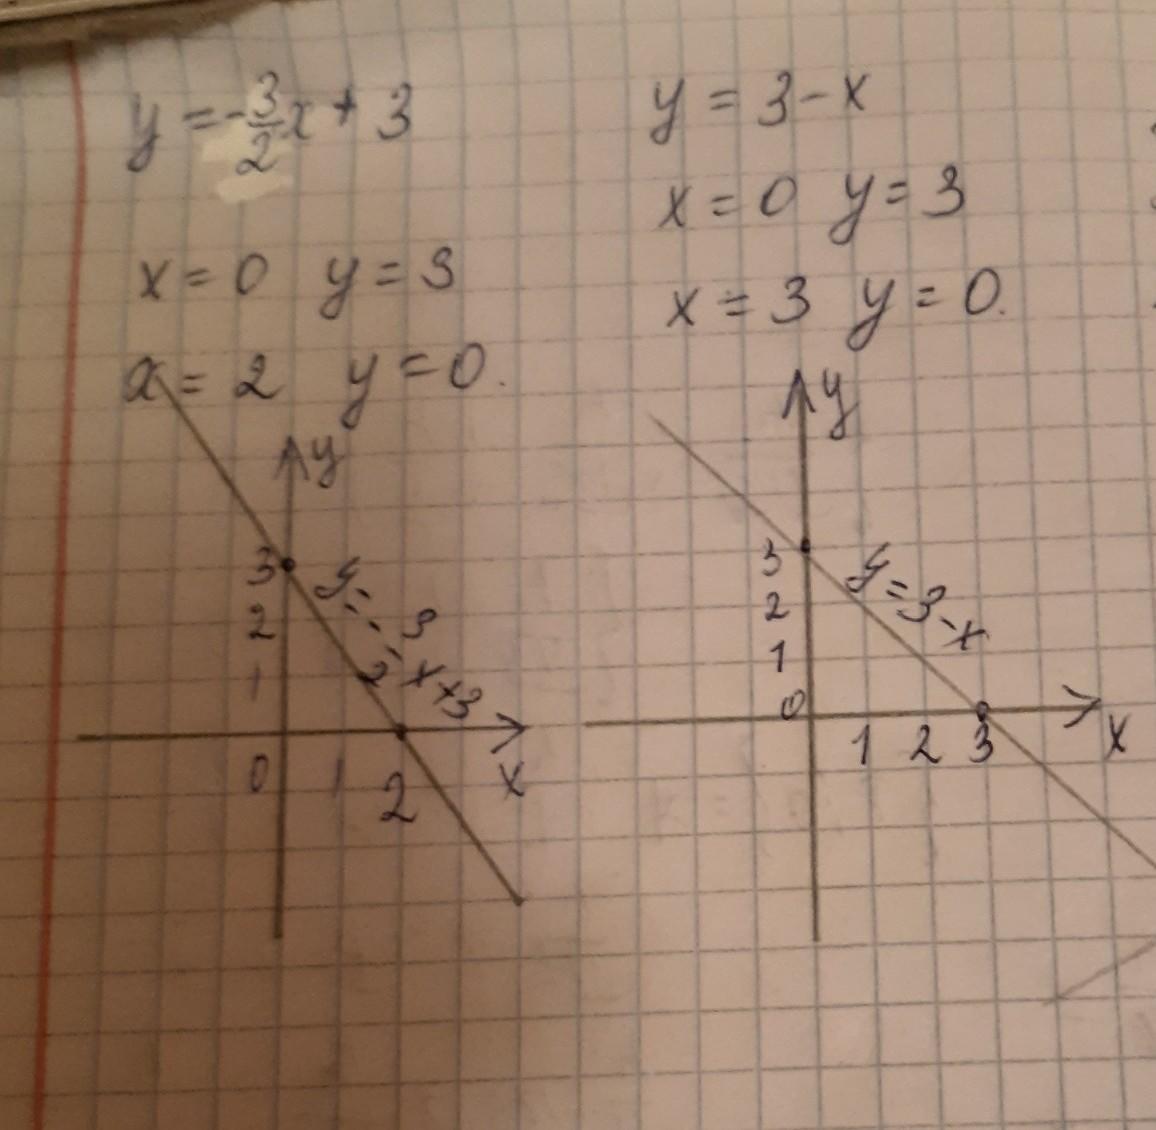 y = -3/2 x + 3
x = 0 y = 3
x = 2 y = 0.
y
3
2
1
0 1 2 x
y = - 3/2 x + 3
y = 3 - x
x = 0 y = 3
x = 3 y = 0.
y
3
2
1
0
1 2 3 x
y = 3 - x